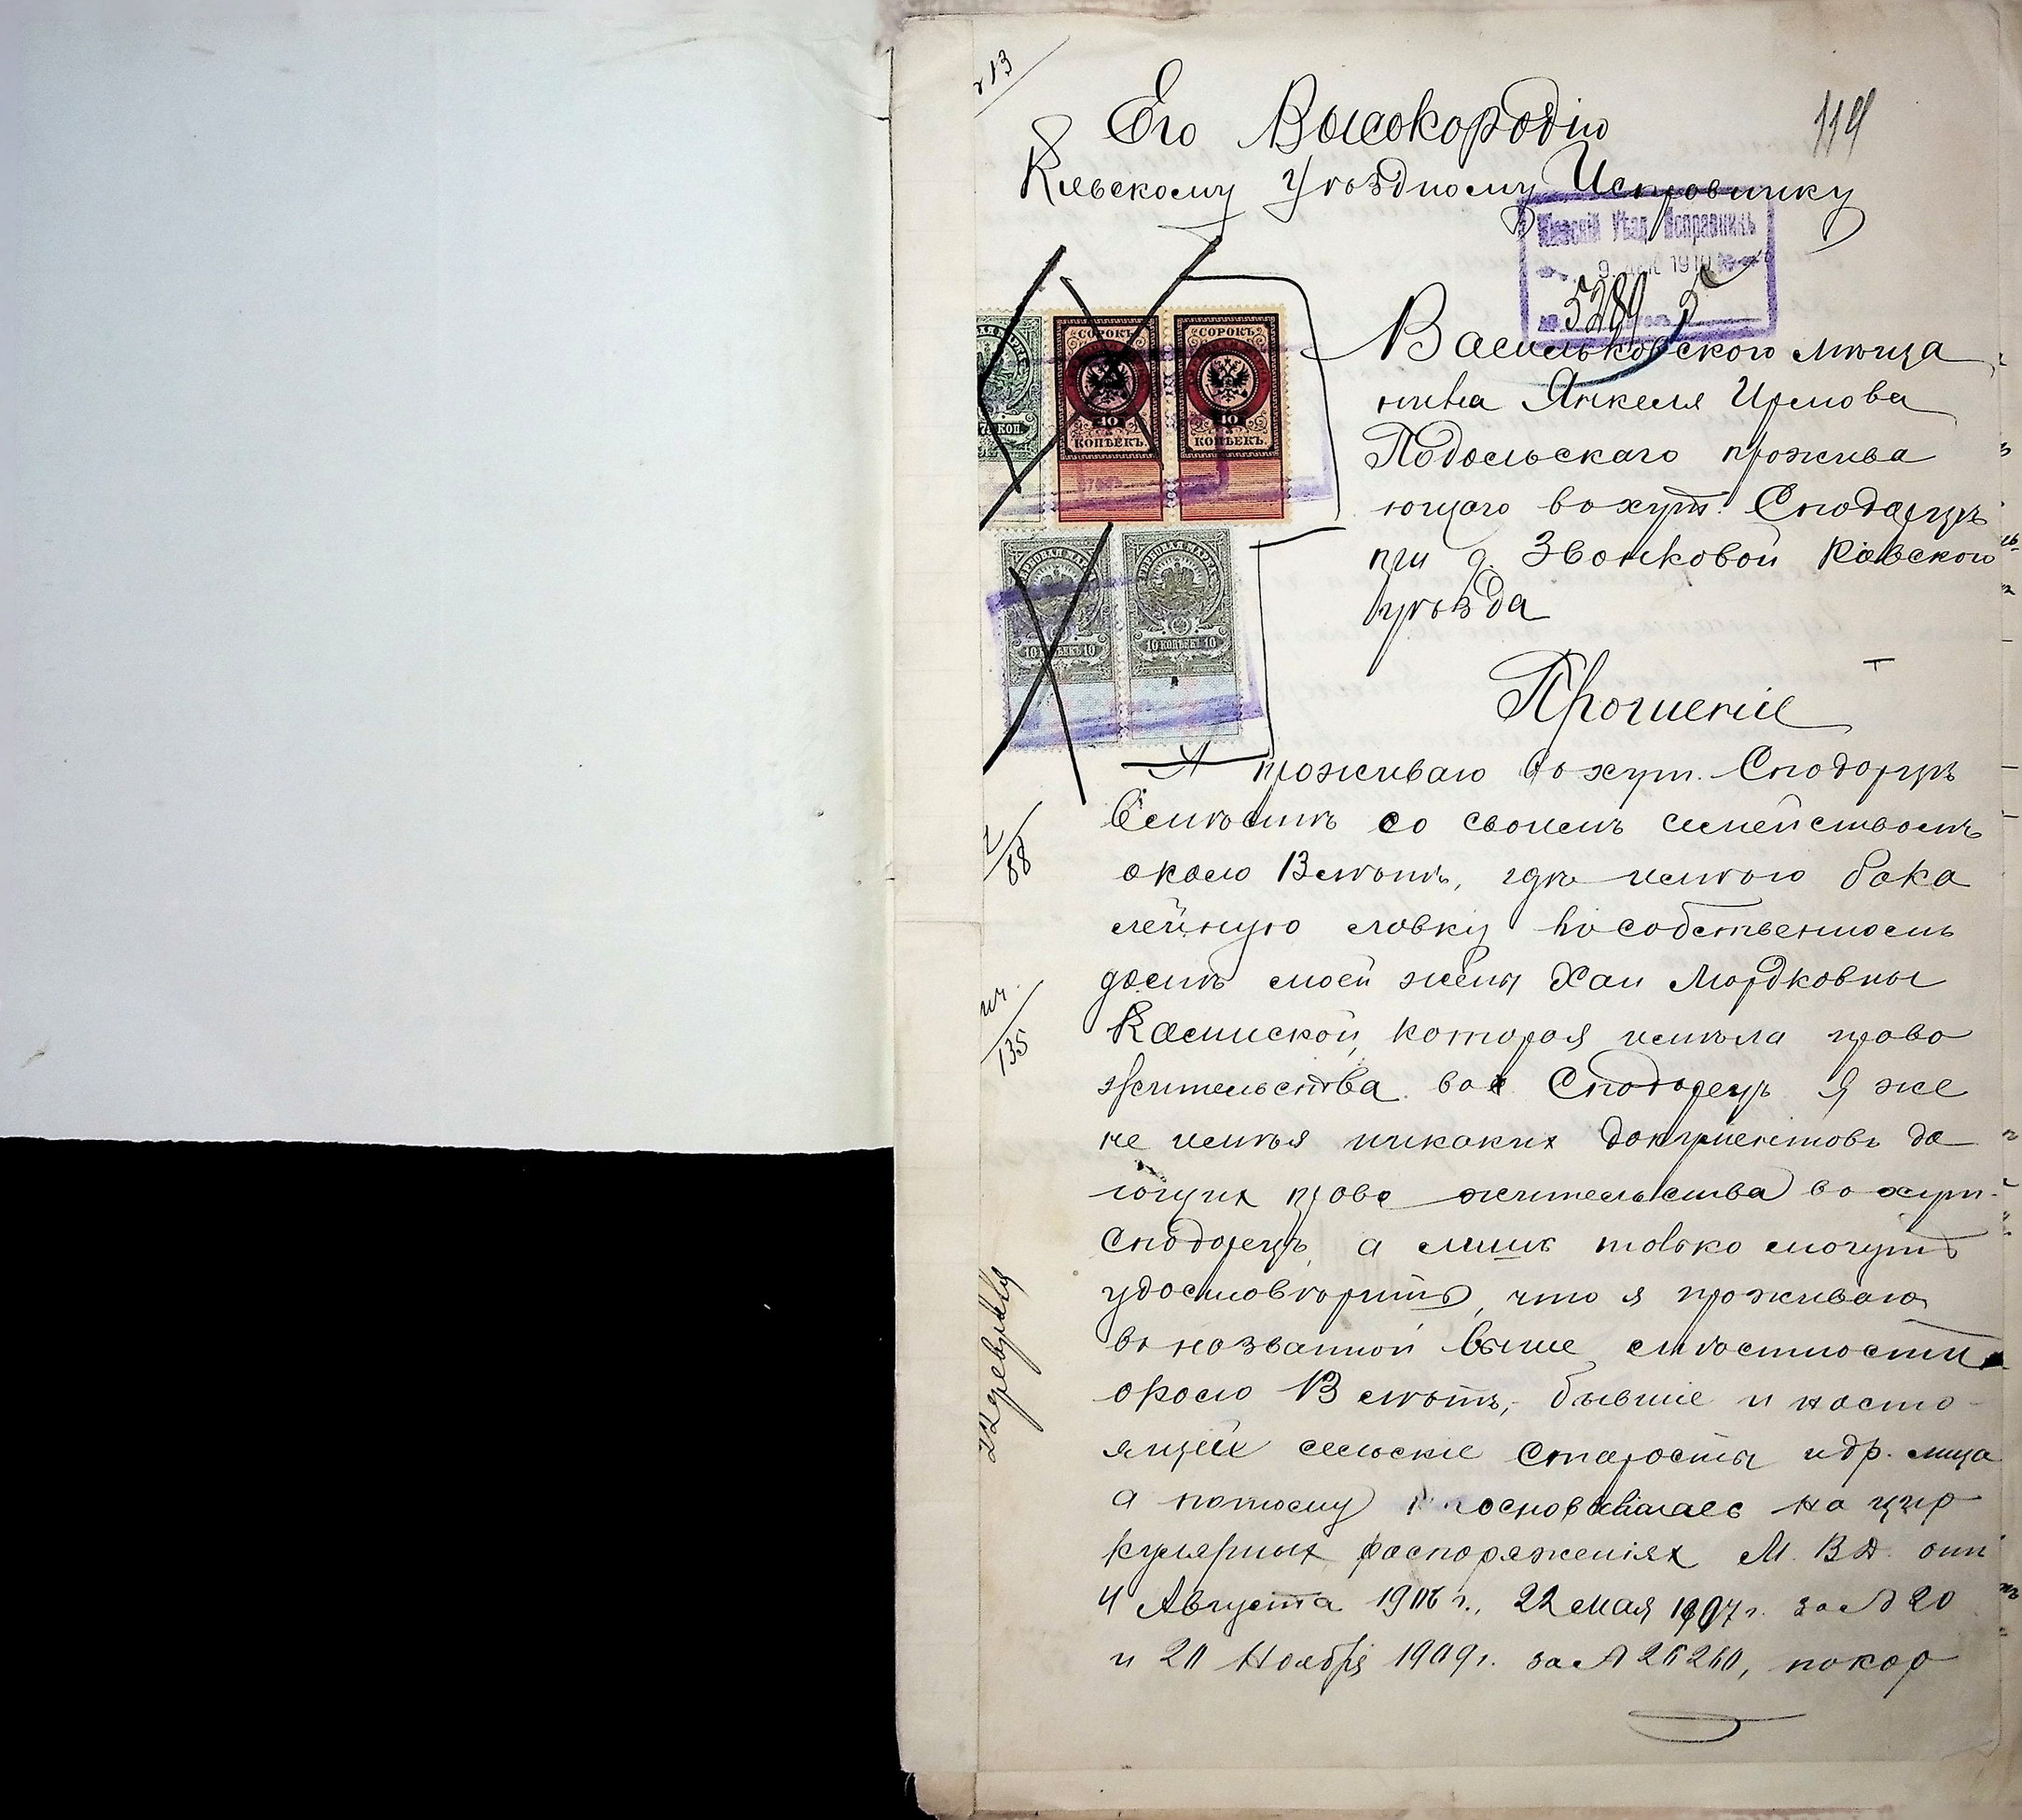 Его Высокородію
119
Кіевскому Уѣздному Исправнику
Кіевскій Уѣзд. Исправникъ
9 ДЕК 1910
5289
Васильковского мѣща
нина Янкеля Ирмова
Подольскаго прожива
ющого въ хут. Сподарцѣ
при д. Звонковой Кіевского
уѣзда
СОРОКЪ СОРОКЪ
75 КОП. 40 40
КОПѢЕКЪ. КОПѢЕКЪ.
ГЕРБОВАЯ МАРКА ГЕРБОВАЯ МАРКА
10 КОПѢЕКЪ 10 10 КОПѢЕКЪ 10
Прошеніе
Я проживаю въ хут. Сподорцѣ
со своимъ семействомъ
около 13 лѣтъ, гдѣ имѣю бака
лейную ловку
моей жены Хаи Мордковны
которая имѣла право
жительства во Сподорецѣ я же
не имѣя никаких документовъ да
ющих право жительства во хут.
Сподорецѣ, а лишь только могутъ
удостовѣрить, что я проживаю
въ названной выше мѣстности
около 13 лѣтъ, бывшіе и насто
ящіе сельскіе старосты и др. лица
а потому основываясь на цир
кулярных распоряженіях М. В Д. отъ
4 Августа 1906 г., 22 мая 1907 г. за № 20
и 20 Ноября 1909 г. за № 26260, покор
88
135